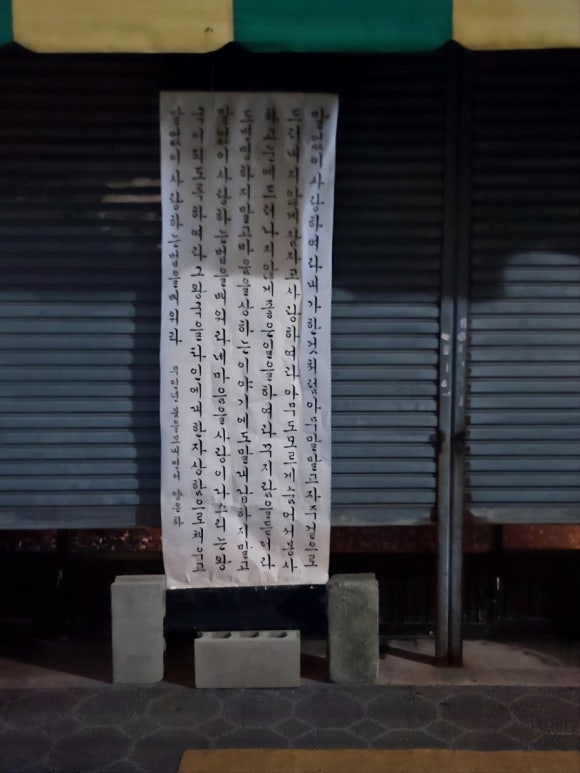 말없이사랑하여라내가한것처럼아무말말고자주겉으로
드러나지않게잠자코사랑하여라아무도모르게숨어서봉사
하고눈에드러나지않게좋은일을하여라꾸지람을듣더라
도변명하지말고마음을상하는이야기에도말대답하지말고
말없이사랑하는법을배워라네마음을사랑이다스리는왕
국이되도록하여라그왕국을타인에대한자상함으로채우고
말없이사랑하는법을배워라